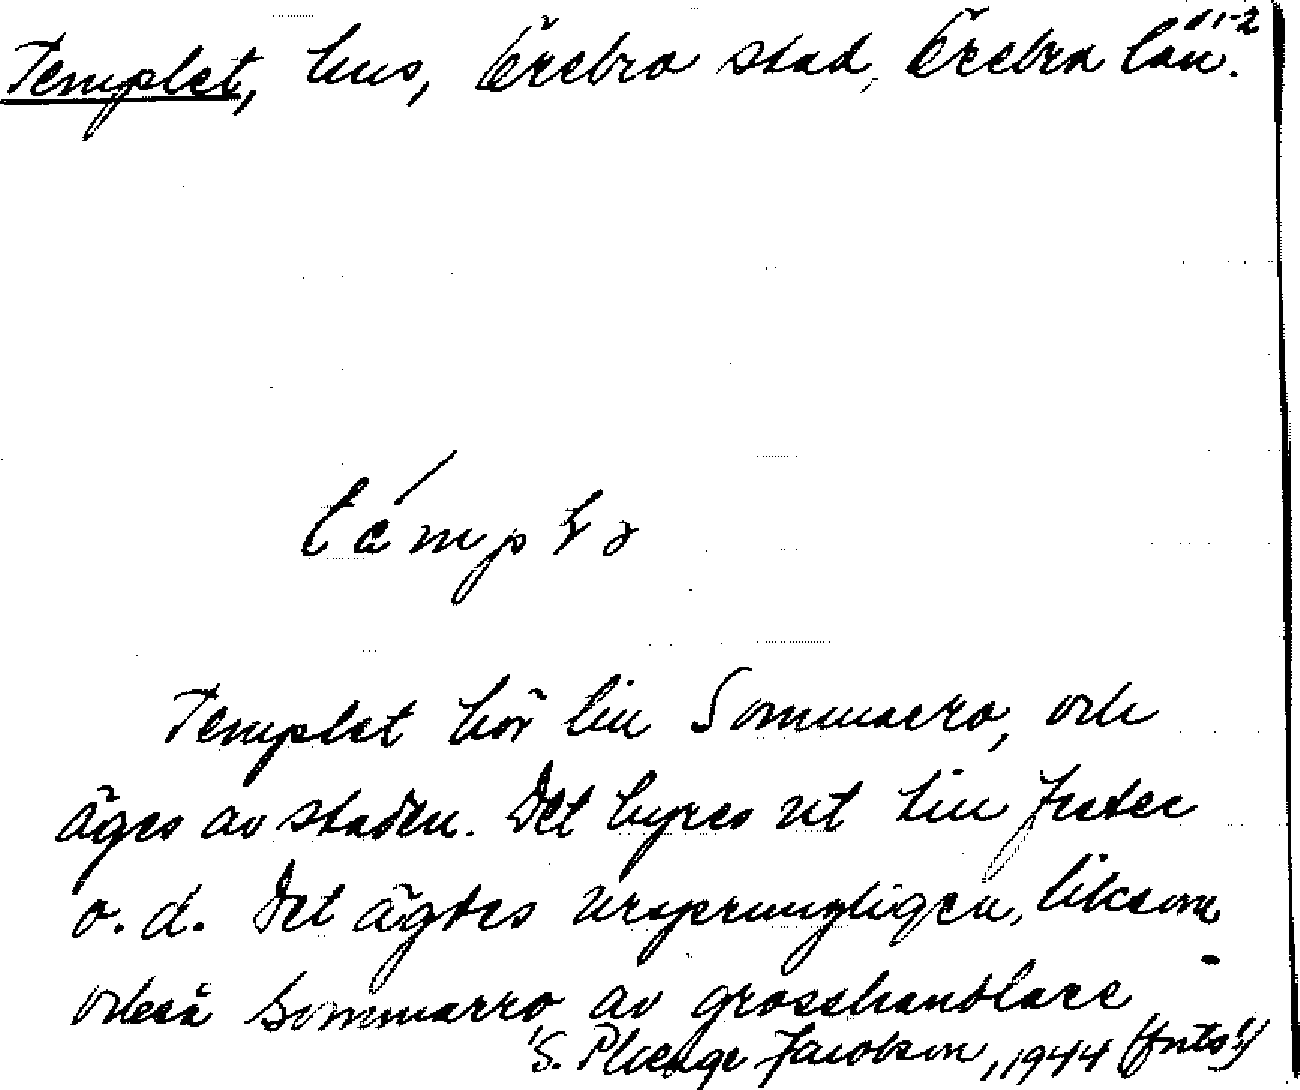 Templet, hus, Örebro stad, Örebro län. 1-2
Templet hör till Sommarro, och
äges av staden. Det hyres ut till fester
o. d. Det ägdes ursprungligen, liksom
också Sommarro av grosshandlare
S. Jacobson, 1944